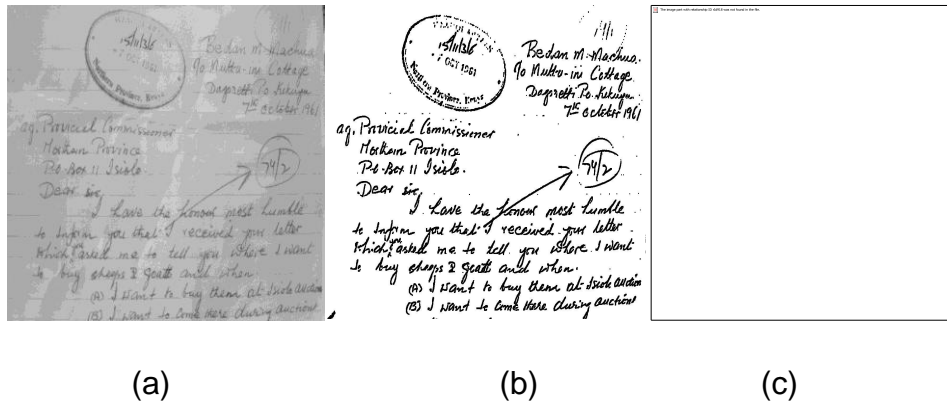 15/11/36
7 OCT 1961
Northern Province, Kenya
Bedan M. Machua
Mutto-ini Cottage
Dagoretti Po. Kikuyu
7th October 1961
ag. Provicial Commissioner
Northern Province
P.O. Box 11 Isiolo.
Dear sir,
74/2
I have the honour most humble
to inform you that I received your letter
which you asked me to tell you where I want
to buy sheeps & goats and when.
(A) I want to buy them at Isiolo auction
(B) I want to come there during auctions
15/11/36
7 OCT 1961
Northern Province, Kenya
Bedan M. Machua.
Mutto-ini Cottage
Dagoretti Po. Kikuyu
7th October 1961
ag. Provicial Commissioner
Northern Province
P.O. Box 11 Isiolo.
Dear sir,
74/2
I have the honour most humble
to inform you that I received your letter
which you asked me to tell you where I want
to buy sheeps & goats and when.
(A) I want to buy them at Isiolo auction
(B) I want to come there during auctions
The image part with relationship ID rId30.8 was not found in the file.
(a) (b) (c)